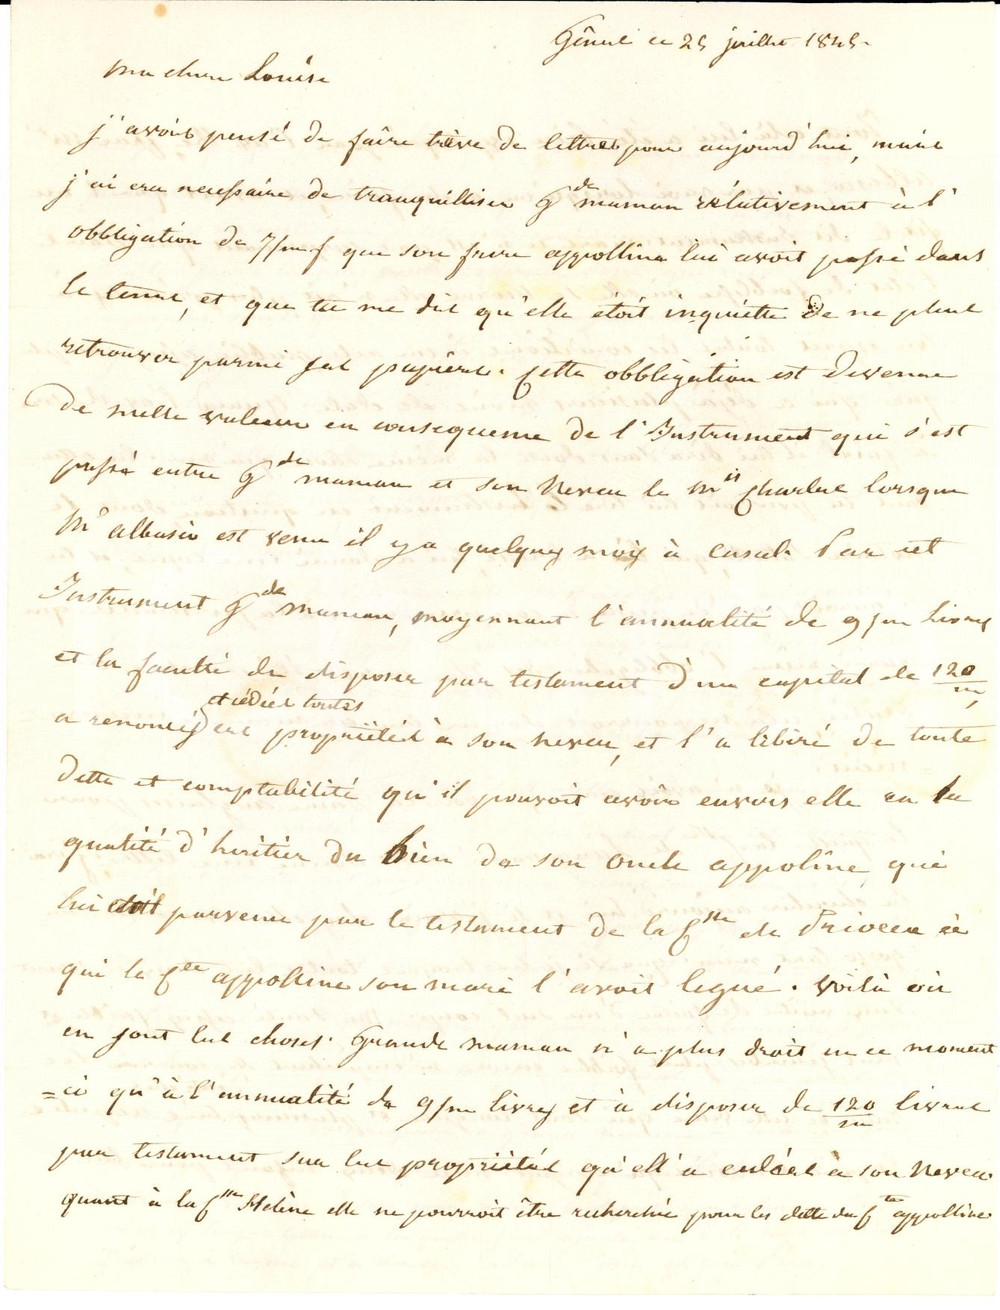 Gênes ce 25 juillet 1845.
ma chere Louise
j'avois pensé de faire trève de lettres pour aujourd'hui, mais
j'ai cru necessaire de tranquilliser G.de maman rélativement à l'
obbligation de 7/m f que son frere appolline lui avoit passé dans
le tems, et que tu me dis qu'elle étoit inquiette de ne plus
retrouver parmi ses papiers. Cette obbligation est devenue
de nulle valeur en consequence de l'Instrument qui s'est
passé entre G.de maman et son Neveu le M.is Charles lorsque
M.r albasio est venu il y a quelques mois à Casal. Par cet
Instrument G.de maman, moyennant l'annualité de 9/m Livres
et la faculté de disposer par testament d'un capital de 120/m,
et cédé toutes
a renoncé ses propriétés à son neveu, et l'a libéré de toute
dette et comptabilité qu'il pouvoit avoir envers elle en la
qualité d'heritier du bien de son oncle appoline, qui
lui étoit parvenu par le testament de la C.sse de Priocca à
qui le C.te appolline son mari l'avoit legué. Voilà où
en sont les choses. Grande maman n'a plus droit en ce moment
=ci qu'à l'annualité de 9/m livres et à disposer de 120/m livres
par testament sur les propriétés qu'ell'a cédées à son Neveu.
quant à la C.sse Hélène elle ne pourroit être recherchée pour les dettes du C.te appolline